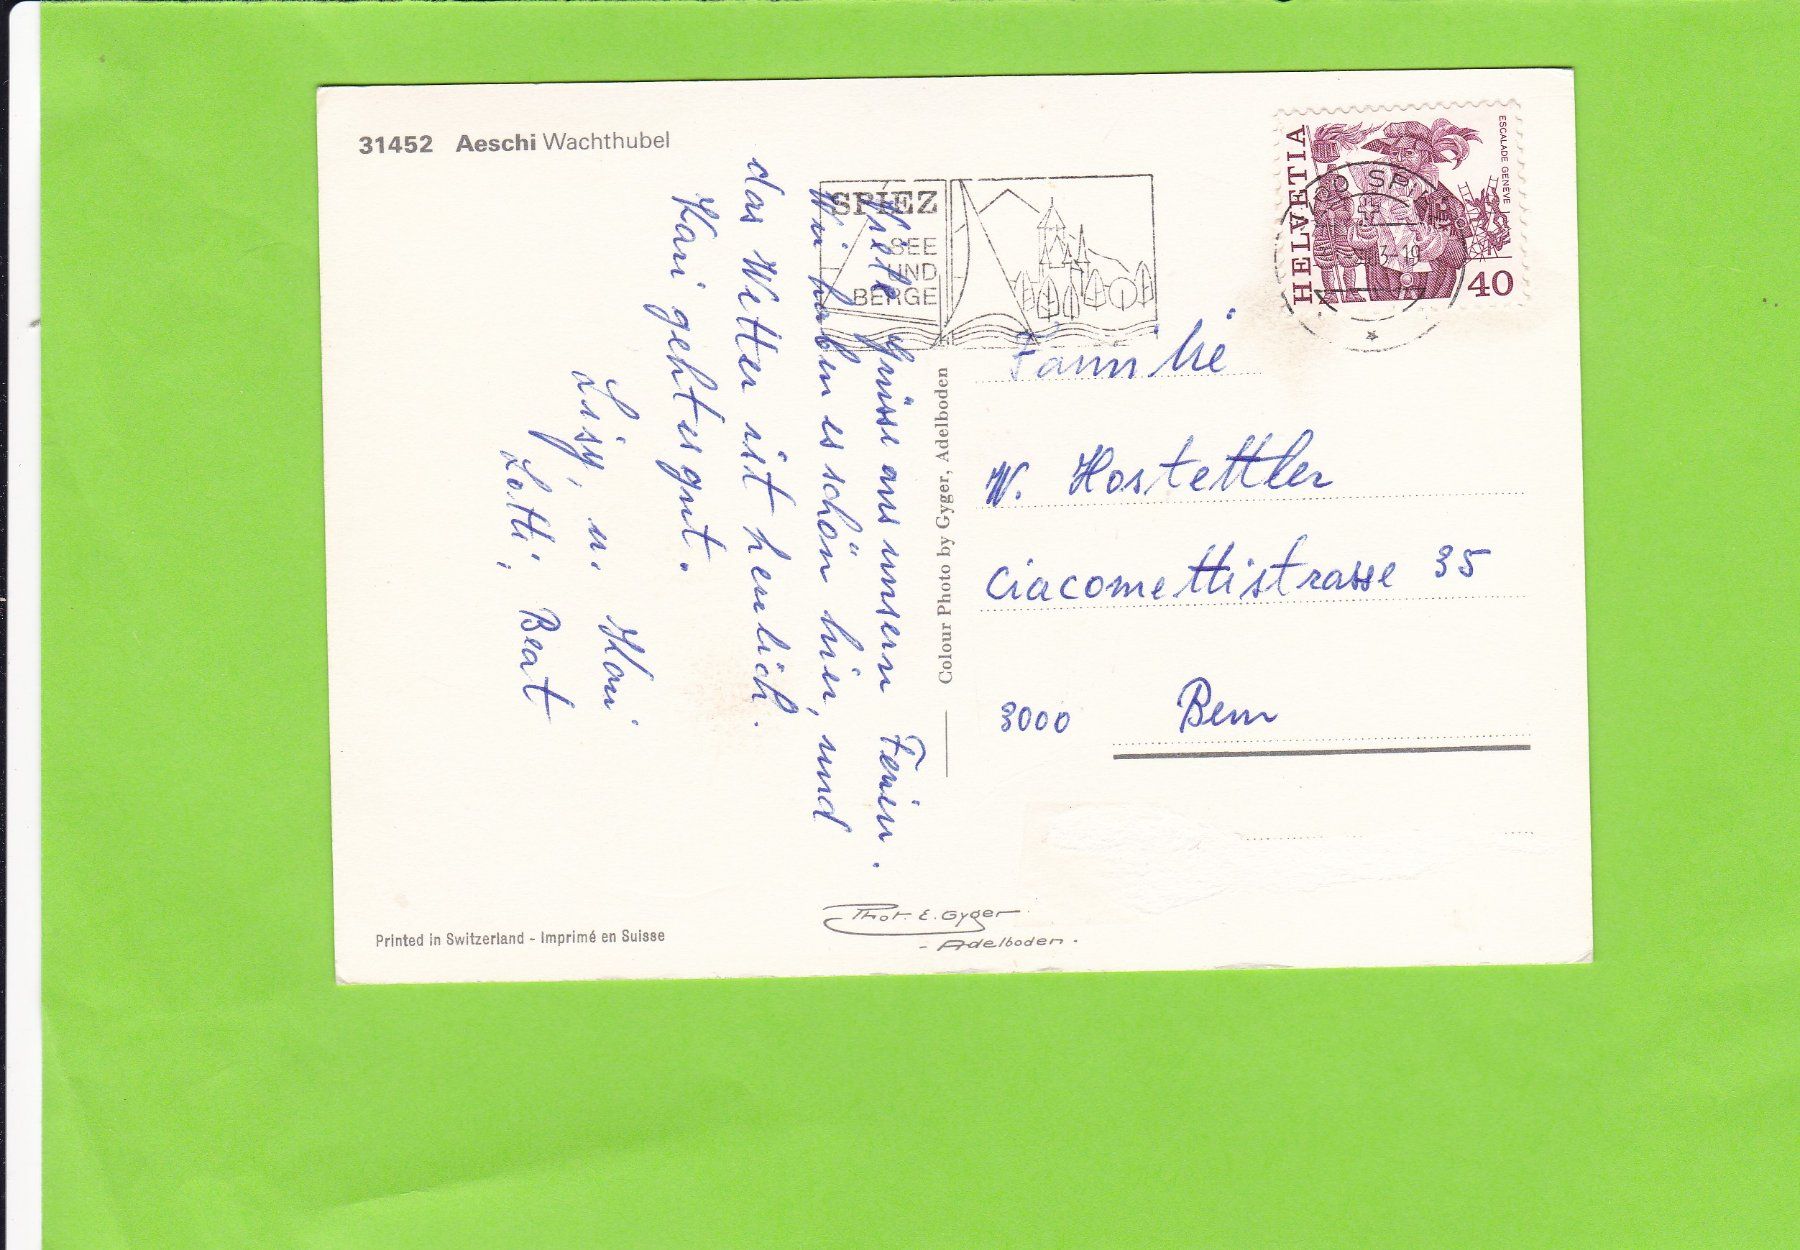 31452 Aeschi Wachthubel
Viele Grüsse aus unsern Ferien.
Wir haben es schön hier, und
das Wetter ist herrlich.
Kari geht es gut.
Lisy, u. Hari
Lotti, Beat
SPIEZ
SEE
UND
BERGE
HELVETIA
ESCALADE GENÈVE
40
SPIEZ
Familie
W. Hostettler
Giacomettistrasse 35
3000 Bern
Colour Photo by Gyger, Adelboden
Phot. E. Gyger
- Adelboden -
Printed in Switzerland - Imprimé en Suisse